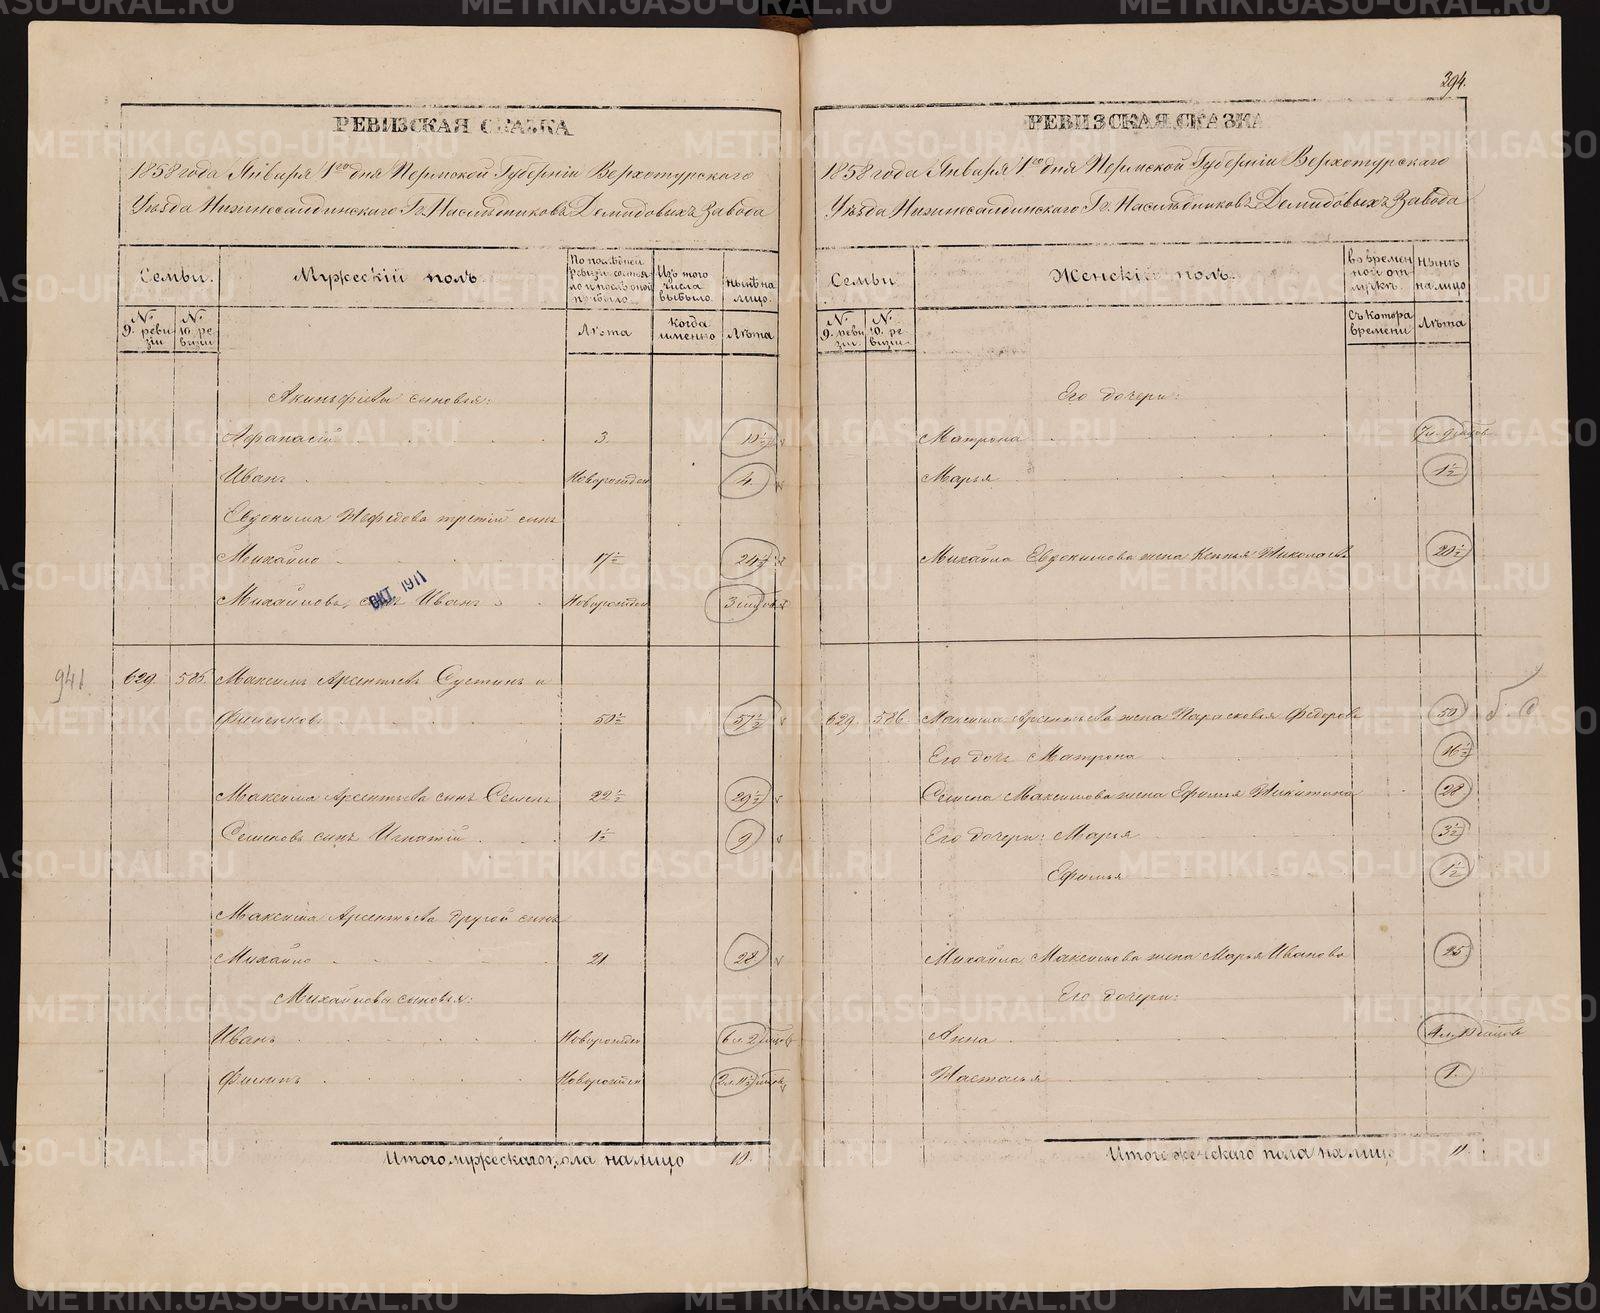 394.
РЕВИЗСКАЯ СКАЗКА
1858 года Января 1го дня Пермской Губерніи Верхотурскаго
Уѣзда Нижнесалдинскаго Гг. Наслѣдниковъ Демидовыхъ Завода
Семьи.
Мужескій полъ.
По послѣдней ревизіи состояло и послѣ оной прибыло.
Изъ того числа выбыло.
нынѣ на лицо.
№ 9. ревизіи
№ 10. ревизіи
Лѣта
Когда именно
Лѣта
Акинфіевы сыновья:
Афанасій 3. 10½
Иванъ Новорожден 4.
Евдокима Нефедова третій сынъ
Михайло 17½ 24½
Михайловъ сынъ Иванъ Новорожден
ОКТ. 1911
941.
629. 586. Максимъ Арсентьевъ Сустинъ и
50½ 57½
Максима Арсентьева сынъ Семенъ 22½ 29½
Семеновъ сынъ Игнатій 1½ 9
Максима Арсентьева другой сынъ
Михайло 21 28
Михайловы сыновья:
Иванъ Новорожден
Филипъ Новорожден
Итого мужескаго пола на лицо 10.
РЕВИЗСКАЯ СКАЗКА
1858 года Января 1го дня Пермской Губерніи Верхотурскаго
Уѣзда Нижнесалдинскаго Гг. Наслѣдниковъ Демидовыхъ Завода
Семьи
Женскій полъ.
во временной отлучкѣ.
нынѣ на лицо
№ 9. ревизіи
№ 10. ревизіи
Съ котора времени
Лѣта
Его дочери:
Матрона
Марья 1½
Михайла Евдокимова жена Ксенья Николаева 20½
629. 586. Максима Арсентьева жена Парасковья Федорова 50
Его дочь Матрона 16½
Семена Максимова жена Ефимья Никитина 28
Его дочери: Марья 3½
Ефимья 1½
Михайла Максимова жена Марья Иванова 25
Его дочери:
Анна
Насталья 1.
Итого женскаго пола на лицо 11.
METRIKI.GASO-URAL.RU